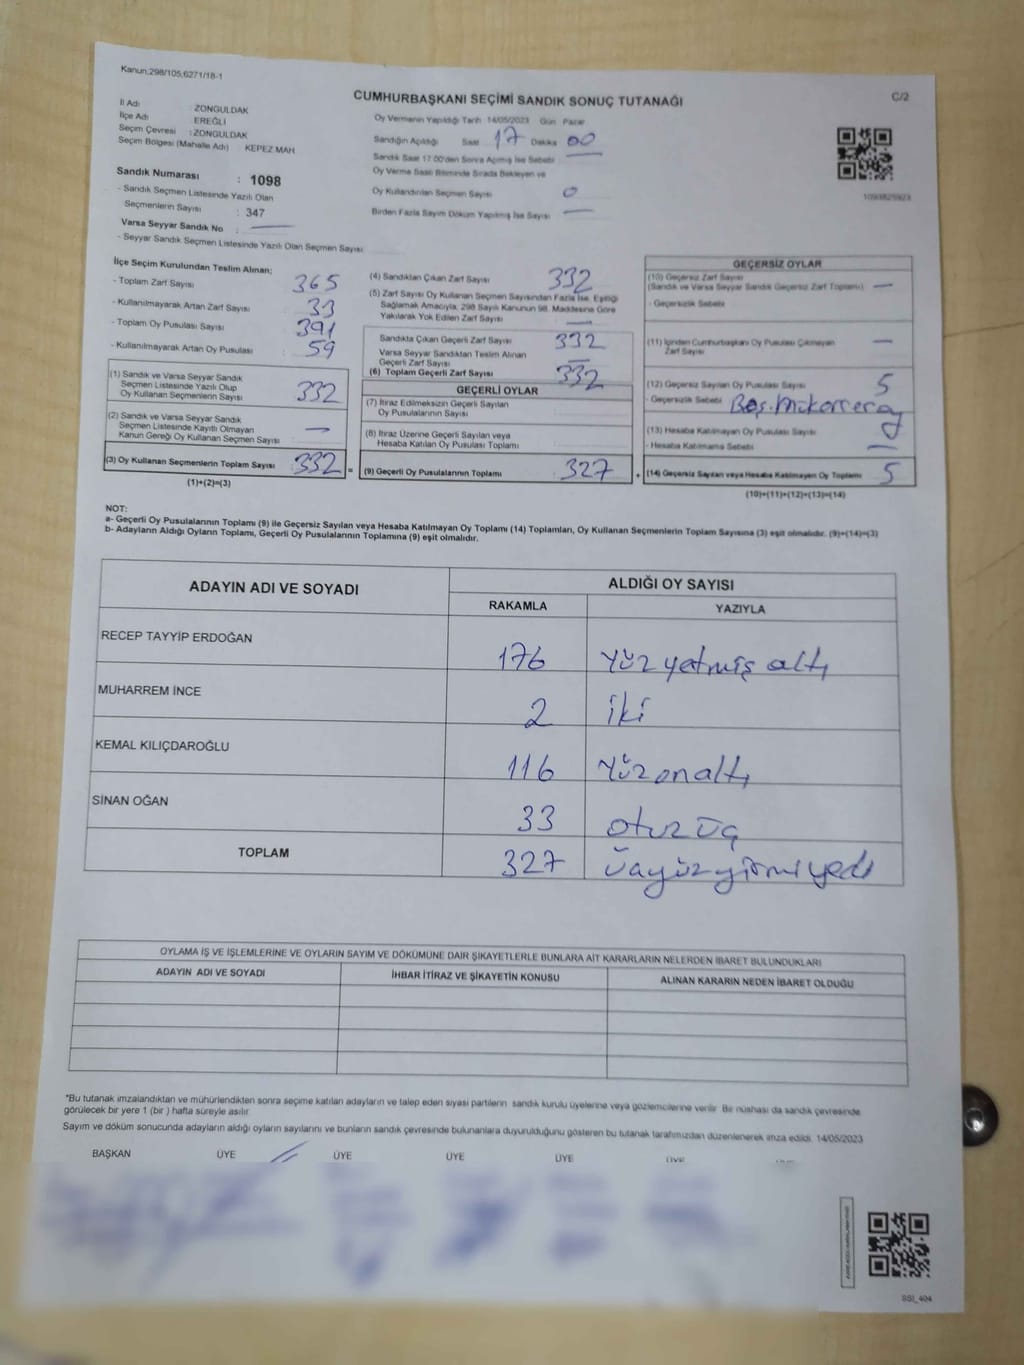 Kanun:298/105;6271/18-1
CUMHURBAŞKANI SEÇİMİ SANDIK SONUÇ TUTANAĞI
C/2
İl Adı : ZONGULDAK
İlçe Adı : EREĞLİ
Seçim Çevresi : ZONGULDAK
Seçim Bölgesi (Mahalle Adı) KEPEZ MAH
Oy Vermenin Yapıldığı Tarih 14/05/2023 Gün Pazar
Sandığın Açıldığı Saat 17 Dakika 00
Sandık Saat 17:00'den Sonra Açılmış İse Sebebi
Oy Verme Saati Bitiminde Sırada Bekleyen ve
Oy Kullandırılan Seçmen Sayısı 0
Birden Fazla Sayım Döküm Yapılmış İse Sayısı —
1093825923
Sandık Numarası : 1098
- Sandık Seçmen Listesinde Yazılı Olan
Seçmenlerin Sayısı : 347
Varsa Seyyar Sandık No —
- Seyyar Sandık Seçmen Listesinde Yazılı Olan Seçmen Sayısı
İlçe Seçim Kurulundan Teslim Alınan;
- Toplam Zarf Sayısı : 365
- Kullanılmayarak Artan Zarf Sayısı : 33
- Toplam Oy Pusulası Sayısı : 391
- Kullanılmayarak Artan Oy Pusulası : 59
(1) Sandık ve Varsa Seyyar Sandık
Seçmen Listesinde Yazılı Olup
Oy Kullanan Seçmenlerin Sayısı : 332
(2) Sandık ve Varsa Seyyar Sandık
Seçmen Listesinde Kayıtlı Olmayan
Kanun Gereği Oy Kullanan Seçmen Sayısı : —
(3) Oy Kullanan Seçmenlerin Toplam Sayısı : 332
(1)+(2)=(3)
(4) Sandıktan Çıkan Zarf Sayısı 332
(5) Zarf Sayısı Oy Kullanan Seçmen Sayısından Fazla İse, Eşitliği
Sağlamak Amacıyla, 298 Sayılı Kanunun 98. Maddesine Göre
Yakılarak Yok Edilen Zarf Sayısı : —
Sandıkta Çıkan Geçerli Zarf Sayısı : 332
Varsa Seyyar Sandıktan Teslim Alınan
Geçerli Zarf Sayısı : —
(6) Toplam Geçerli Zarf Sayısı : 332
GEÇERLİ OYLAR
(7) İtiraz Edilmeksizin Geçerli Sayılan
Oy Pusulalarının Sayısı
(8) İtiraz Üzerine Geçerli Sayılan veya
Hesaba Katılan Oy Pusulası Toplamı
= (9) Geçerli Oy Pusulalarının Toplamı : 327
GEÇERSİZ OYLAR
(10) Geçersiz Zarf Sayısı
(Sandık ve Varsa Seyyar Sandık Geçersiz Zarf Toplamı) : —
- Geçersizlik Sebebi
(11) İçinden Cumhurbaşkanı Oy Pusulası Çıkmayan
Zarf Sayısı : —
(12) Geçersiz Sayılan Oy Pusulası Sayısı : 5
- Geçersizlik Sebebi
(13) Hesaba Katılmayan Oy Pusula Sayısı
- Hesaba Katılmama Sebebi —
+ (14) Geçersiz Sayılan veya Hesaba Katılmayan Oy Toplamı 5
(10)+(11)+(12)+(13)=(14)
NOT:
a- Geçerli Oy Pusulalarının Toplamı (9) ile Geçersiz Sayılan veya Hesaba Katılmayan Oy Toplamı (14) Toplamları, Oy Kullanan Seçmenlerin Toplam Sayısına (3) eşit olmalıdır. (9)+(14)=(3)
b- Adayların Aldığı Oyların Toplamı, Geçerli Oy Pusulalarının Toplamına (9) eşit olmalıdır.
ADAYIN ADI VE SOYADI ALDIĞI OY SAYISI
RAKAMLA YAZIYLA
RECEP TAYYİP ERDOĞAN 176 Yüz yetmiş altı
MUHARREM İNCE 2 iki
KEMAL KILIÇDAROĞLU 116 Yüz on altı
SİNAN OĞAN 33 otuz üç
TOPLAM 327 üçyüz yirmi yedi
OYLAMA İŞ VE İŞLEMLERİNE VE OYLARIN SAYIM VE DÖKÜMÜNE DAİR ŞİKAYETLERLE BUNLARA AİT KARARLARIN NELERDEN İBARET BULUNDUKLARI
ADAYIN ADI VE SOYADI İHBAR İTİRAZ VE ŞİKAYETİN KONUSU ALINAN KARARIN NEDEN İBARET OLDUĞU
*Bu tutanak imzalandıktan ve mühürlendikten sonra seçime katılan adayların ve talep eden siyasi partilerin sandık kurulu üyelerine veya gözlemcilerine verilir. Bir nüshası da sandık çevresinde
görülecek bir yere 1 (bir ) hafta süreyle asılır.
Sayım ve döküm sonucunda adayların aldığı oyların sayılarını ve bunların sandık çevresinde bulunanlara duyurulduğunu gösteren bu tutanak tarafımızdan düzenlenerek imza edildi. 14/05/2023
BAŞKAN ÜYE ÜYE ÜYE ÜYE ÜYE
SSI_404